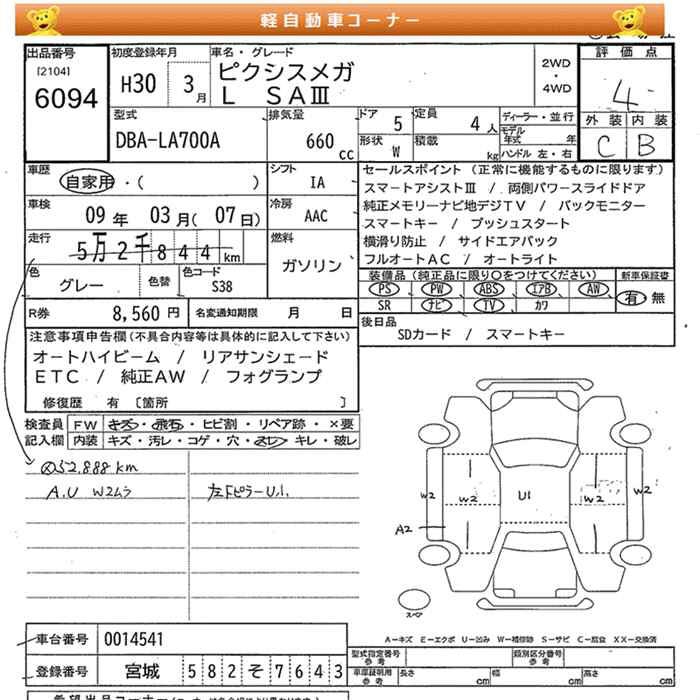 軽自動車コーナー
出品番号
[2104]
6094
初度登録年月
H30 3月
車名・グレード
ピクシスメガ
L SAⅢ
2WD
・
4WD
評価点
4
外装 内装
C B
型式
DBA-LA700A
排気量
660 cc
ドア 5
定員 4人
形状 W
積載 kg
ディーラー・並行
モデル年式 年
ハンドル 左・右
車歴
自家用・( )
シフト
IA
車検
09年 03月(07日)
冷房
AAC
走行
5万2千844km
燃料
ガソリン
色
グレー
色替
色コード
S38
セールスポイント (正常に機能するものに限ります)
スマートアシストⅢ / 両側パワースライドドア
純正メモリーナビ地デジTV / バックモニター
スマートキー / プッシュスタート
横滑り防止 / サイドエアバック
フルオートAC / オートライト
装備品 (純正品に限り○をつけてください)
新車保証書
PS PW ABS エアB AW
SR ナビ TV カワ
有 無
R券 8,560円
名変通知期限 月 日
後日品
SDカード / スマートキー
注意事項申告欄(不具合内容等は具体的に記入して下さい)
オートハイビーム / リアサンシェード
ETC / 純正AW / フォグランプ
修復歴 有 [箇所 ]
検査員記入欄
FW キズ・飛石・ヒビ割・リペア跡・×要
内装 キズ・汚レ・コゲ・穴・スレ・キレ・破レ
52.888km
A.U W2ムラ
左FピラーU1.
W2
W2
U1
W2
W2
A2
スペア
A-キズ E-エクボ U-凹み W-補修跡 S-サビ C-腐食 XX-交換済
車台番号 0014541
登録番号 宮城 582そ7643
型式指定番号
参考
類別区分番号
参考
車庫証明用
参考
長さ cm
幅 cm
高さ cm